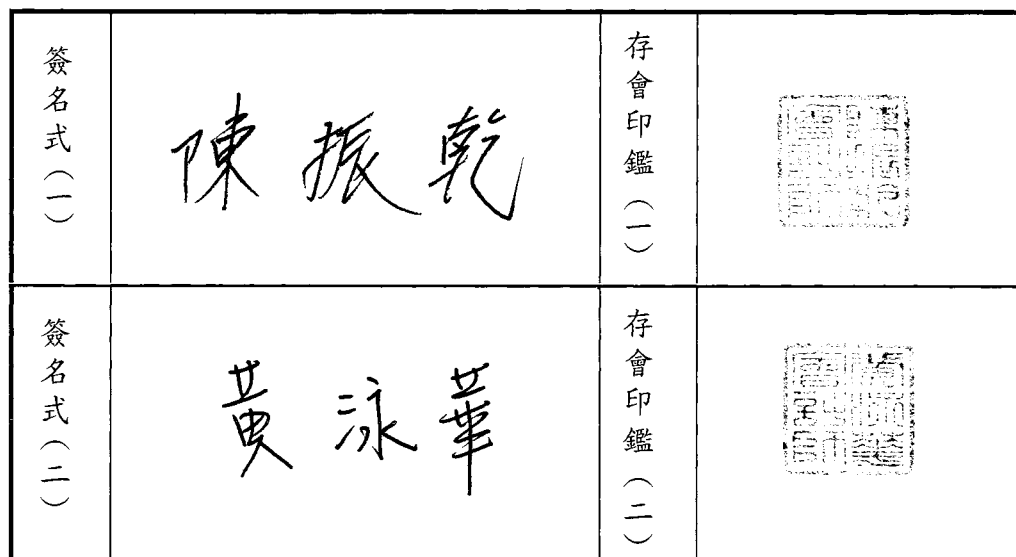 簽名式(一)
陳振乾
存會印鑑(一)
簽名式(二)
黃泳華
存會印鑑(二)